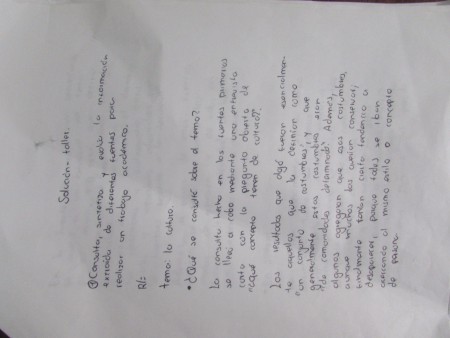 Solución taller.
① Consulta, sintetiza y evalúa la información
extraída de diferentes fuentes para
realizar un trabajo académico.
R/=
tema: la cultura.
• ¿Qué se consultó sobre el tema?
La consulta hecha en las fuentes primarias
se llevó a cabo mediante una entrevista
corta con la pregunta abierta de
¿qué concepto tienen de cultura?.
Los resultados que dejó fueron esencialmen-
te aquellos que la describían como
"un conjunto de costumbres" y que
generalmente estas costumbres eran
"de comunidades determinada". Además,
algunos agregaron que esas costumbres,
aunque muchos las querían conservar,
finalmente tenían cierta tendencia a
desaparecer, porque todos se iban
al mismo estilo o concepto
de